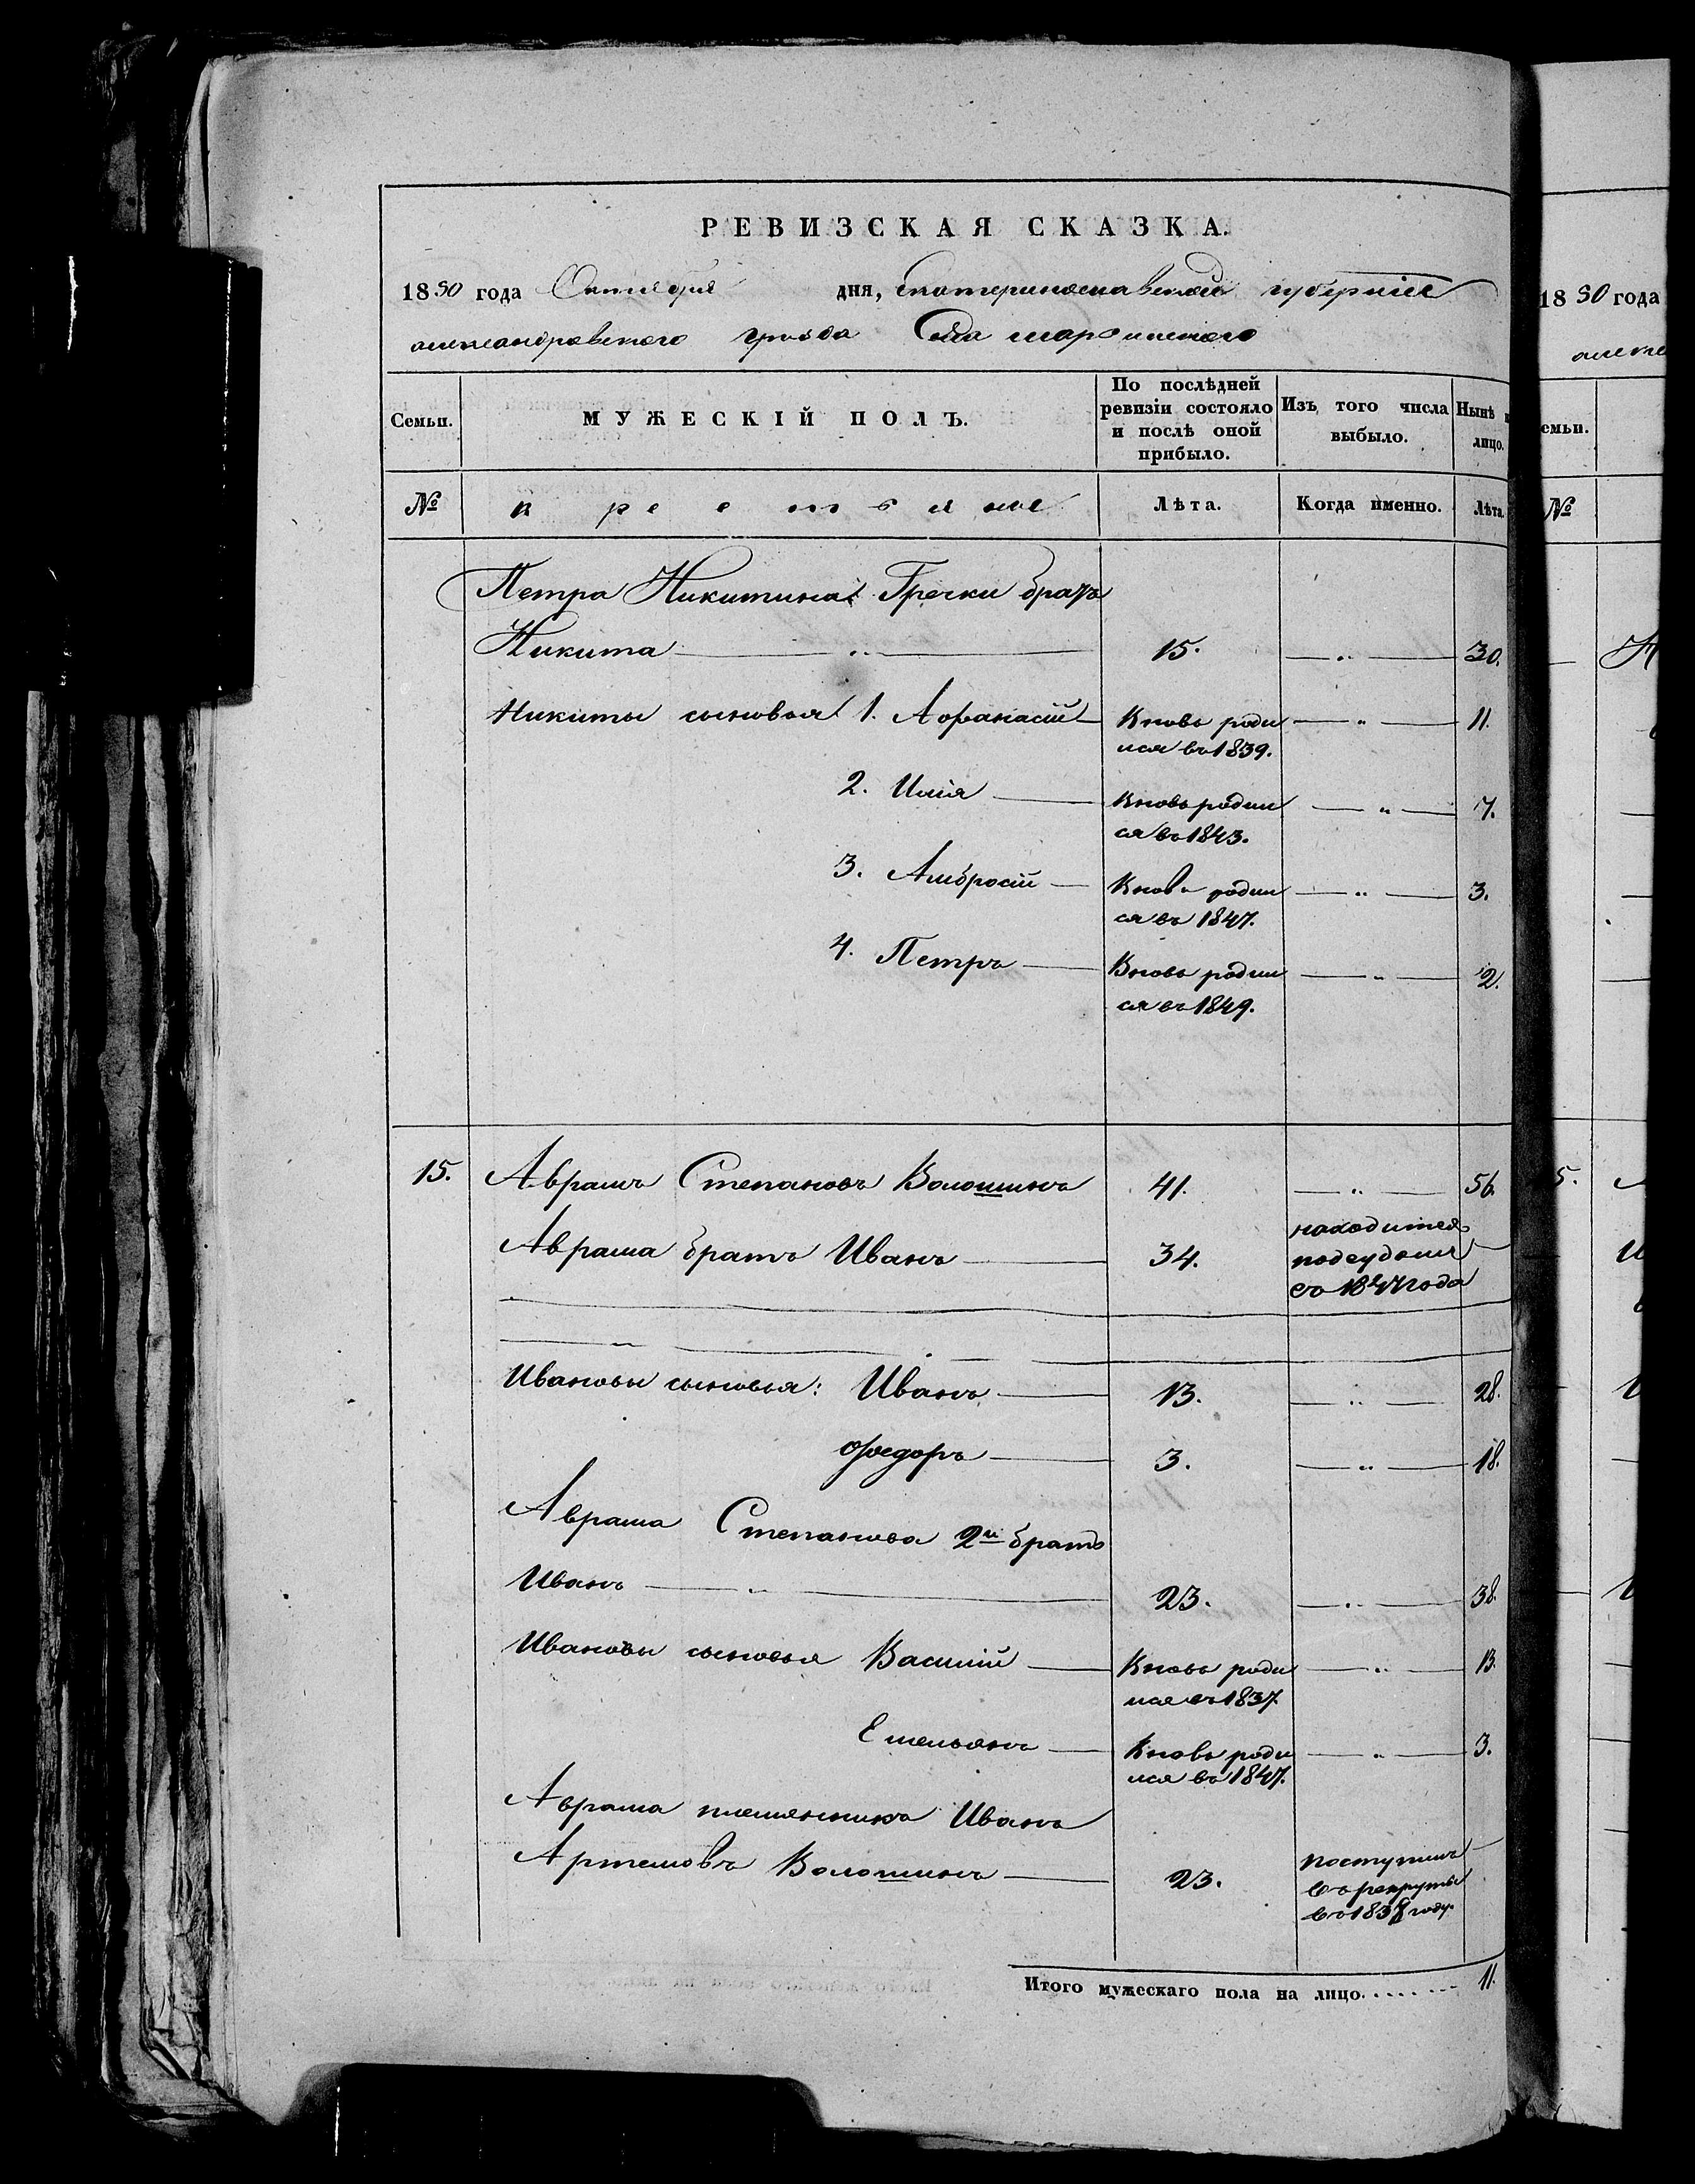 РЕВИЗСКАЯ СКАЗКА.
1850 года Октября дня, Екатеринославской губерніи
александровскаго уѣзда Села
Семьи. МУЖЕСКІЙ ПОЛЪ. По послѣдней ревизіи состояло и послѣ оной прибыло. Изъ того числа выбыло. Нынѣ н лицо.
№ крестьяне Лѣта. Когда именно. Лѣта.
Петра Никитина Гречки братъ
Никита 15. — „ — 30.
Никиты сыновья 1. Афанасій Вновь роди — „ — 11.
лся въ 1839.
2. Илія Вновь родил — „ — 7.
ся въ 1843.
3. Амбросій Вновь родил — „ — 3.
ся въ 1847.
4. Петръ Вновь родил — „ — 2.
ся въ 1849.
15. Аврамъ Степановъ Волошинъ 41. — „ — 56.
находится
Аврама братъ Иванъ 34. подсудомъ
съ 1847 года
Ивановы сыновья: Иванъ 13. — „ — 28.
Федоръ 3. — „ — 18.
Аврама Степанова 2й братъ
Иванъ 23. — „ — 38.
Ивановы сыновья Василій Вновь роди — „ — 13.
лся въ 1837
Емельянъ Вновь роди — „ — 3.
лся въ 1847.
Аврама племянникъ Иванъ
Артемовъ Волошинъ 23. поступилъ
въ рекруты
въ 1838 году.
Итого мужескаго пола на лицо....... 11.
18 50 года
алекса
емьи.
№
5.